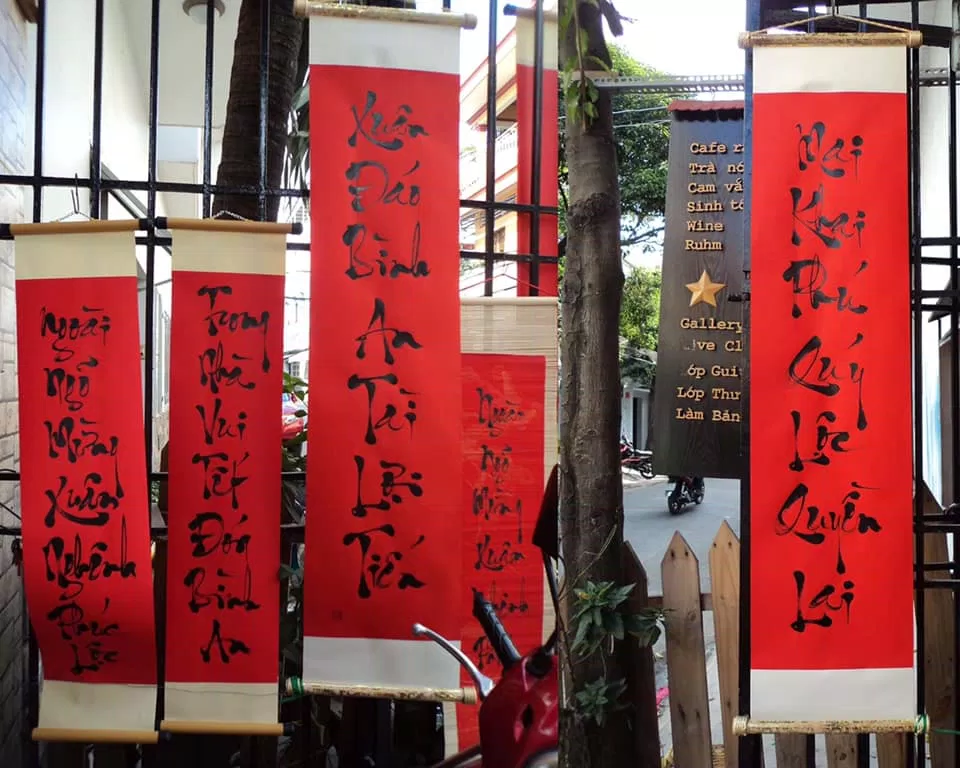 Ngoài
Ngõ
Mừng
Xuân
Nghênh
Phúc
Lộc
Trong
Nhà
Vui
Tết
Đón
Bình
An
Xuân
Đáo
Bình
An
Tài
Lợi
Tiến
Ngoài
Ngõ
Mừng
Xuân
Cafe
Trà
Cam
Sinh
Wine
Ruhm
Gallery
Lớp
Làm
Mai
Khai
Phú
Quý
Lộc
Quyền
Lai